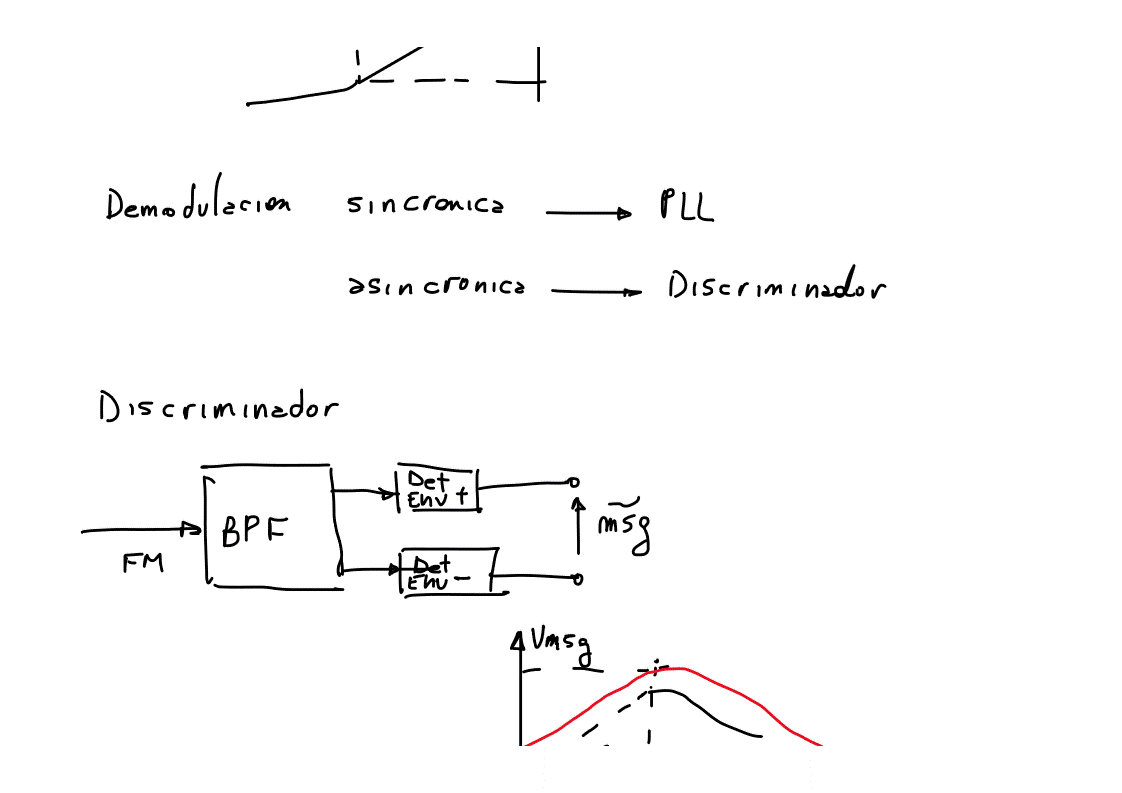 Demodulacion sincronica PLL
asincronica Discriminador
Discriminador
Det
Env +
BPF
msg
FM
Det
Env -
Vmsg